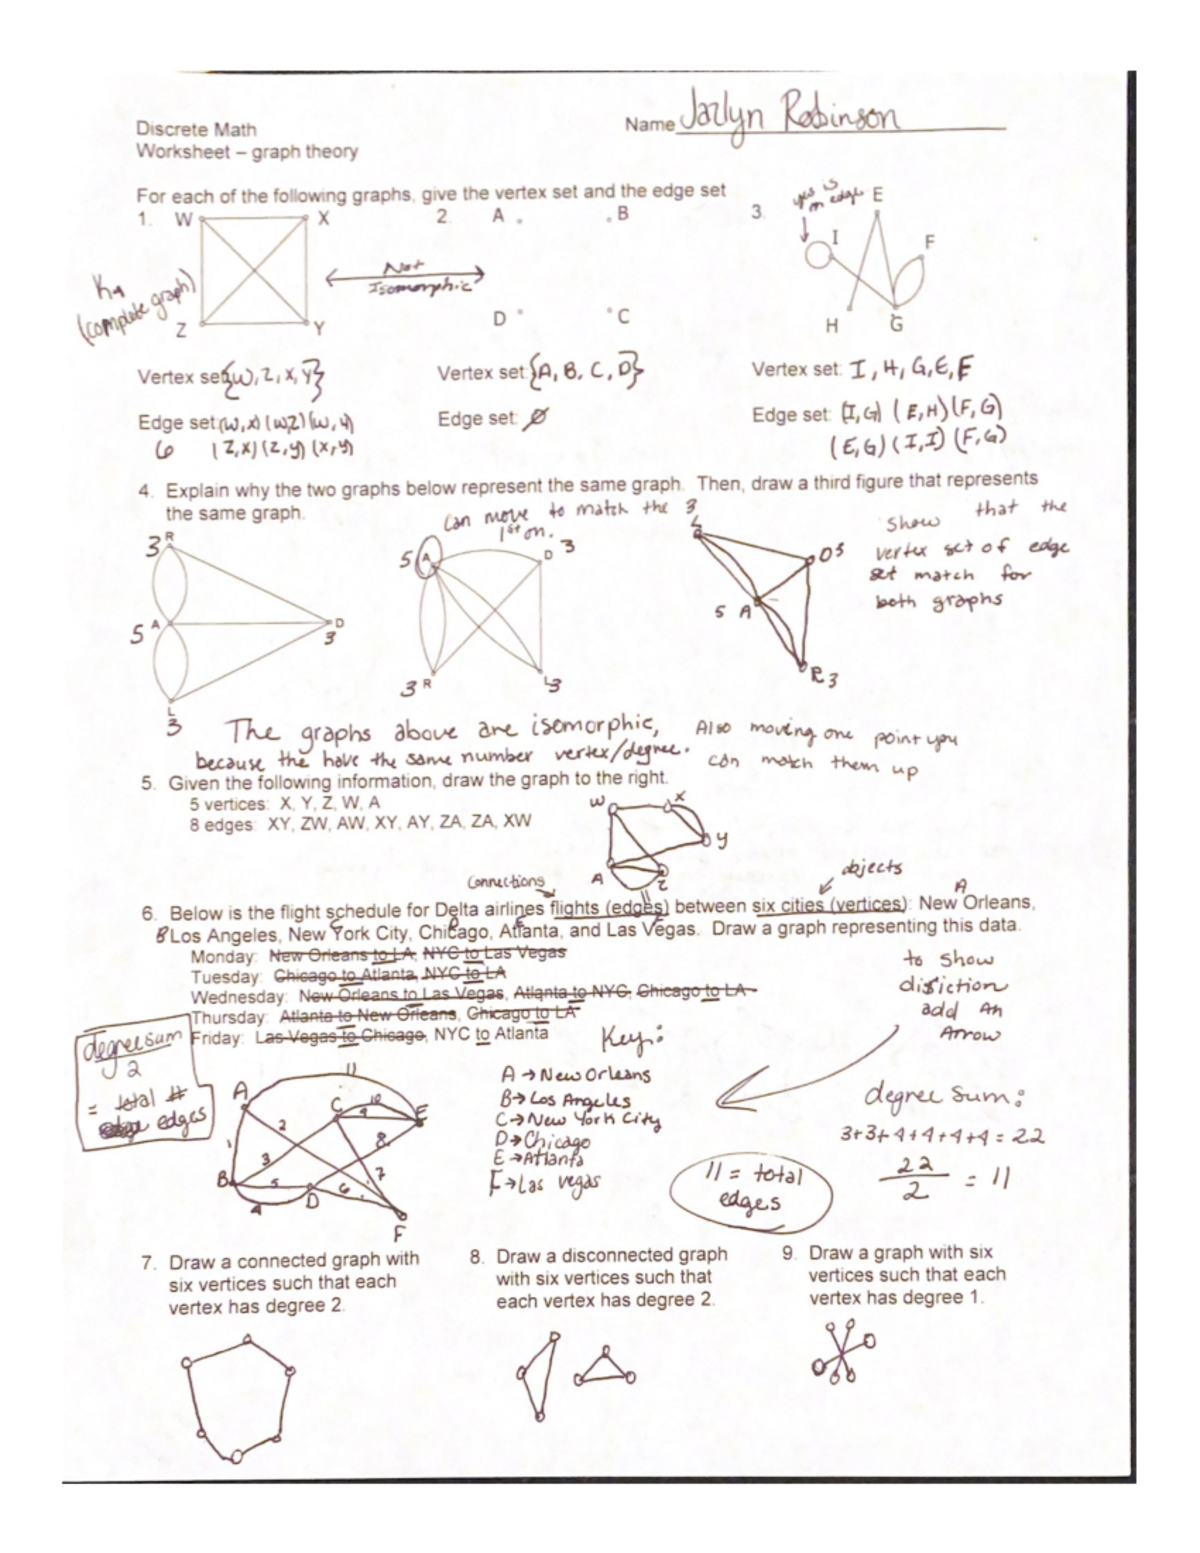 Discrete Math
Worksheet – graph theory
Name Jazlyn Robinson
For each of the following graphs, give the vertex set and the edge set
1. W X
Z Y
K4
(complete graph)
Not
Isomorphic
2. A B
D C
3. E
yes is
an edge
I F
H G
Vertex set: {W, Z, X, Y}
Vertex set: {A, B, C, D}
Vertex set: I, H, G, E, F
Edge set: (W,X) (W,Z) (W,Y)
6 (Z,X) (Z,Y) (X,Y)
Edge set: ∅
Edge set: (I,G) (E,H) (F,G)
(E,G) (I,I) (F,G)
4. Explain why the two graphs below represent the same graph. Then, draw a third figure that represents
the same graph.
Can move to match the
1st on.
3 R
5 A
D 3
L 3
5 A
D 3
3 R
L 3
3
L
D 3
5 A
R 3
Show that the
vertex set of edge
set match for
both graphs
The graphs above are isomorphic,
because the have the same number vertex/degree.
Also moving one point you
can match them up
5. Given the following information, draw the graph to the right.
5 vertices: X, Y, Z, W, A
8 edges: XY, ZW, AW, XY, AY, ZA, ZA, XW
W X
Y
A Z
Connections
objects
6. Below is the flight schedule for Delta airlines flights (edges) between six cities (vertices): New Orleans,
Los Angeles, New York City, Chicago, Atlanta, and Las Vegas. Draw a graph representing this data.
A
B C D E F
Monday: New Orleans to LA, NYC to Las Vegas
Tuesday: Chicago to Atlanta, NYC to LA
Wednesday: New Orleans to Las Vegas, Atlanta to NYC, Chicago to LA
Thursday: Atlanta to New Orleans, Chicago to LA
Friday: Las Vegas to Chicago, NYC to Atlanta
to show
disiction
add An
Arrow
degree sum
2
= total #
edges
A B C D E F
1 2 3 4 5 6 7 8 9 10 11
Key:
A → New Orleans
B → Los Angeles
C → New York City
D → Chicago
E → Atlanta
F → Las Vegas
degree sum:
3+3+4+4+4+4 = 22
22
2
= 11
11 = total
edges
7. Draw a connected graph with
six vertices such that each
vertex has degree 2.
8. Draw a disconnected graph
with six vertices such that
each vertex has degree 2.
9. Draw a graph with six
vertices such that each
vertex has degree 1.